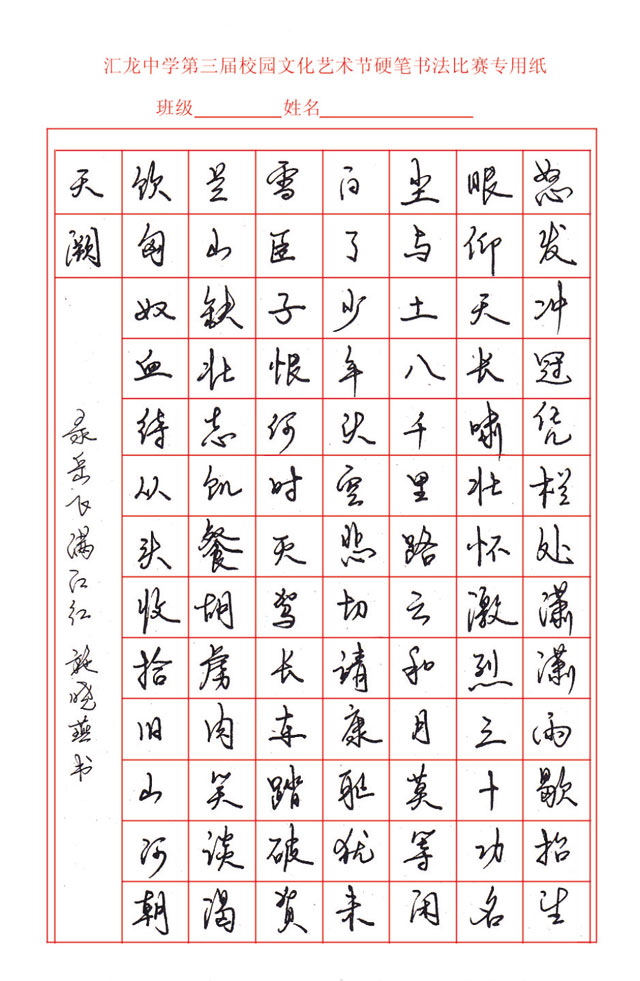 汇龙中学第三届校园文化艺术节硬笔书法比赛专用纸
班级 姓名
怒发冲冠凭栏处潇潇雨歇抬望
眼仰天长啸壮怀激烈三十功名
尘与土八千里路云和月莫等闲
白了少年头空悲切靖康耻犹未
雪臣子恨何时灭驾长车踏破贺
兰山缺壮志饥餐胡虏肉笑谈渴
饮匈奴血待从头收拾旧山河朝
天阙
录岳飞满江红 晓燕书